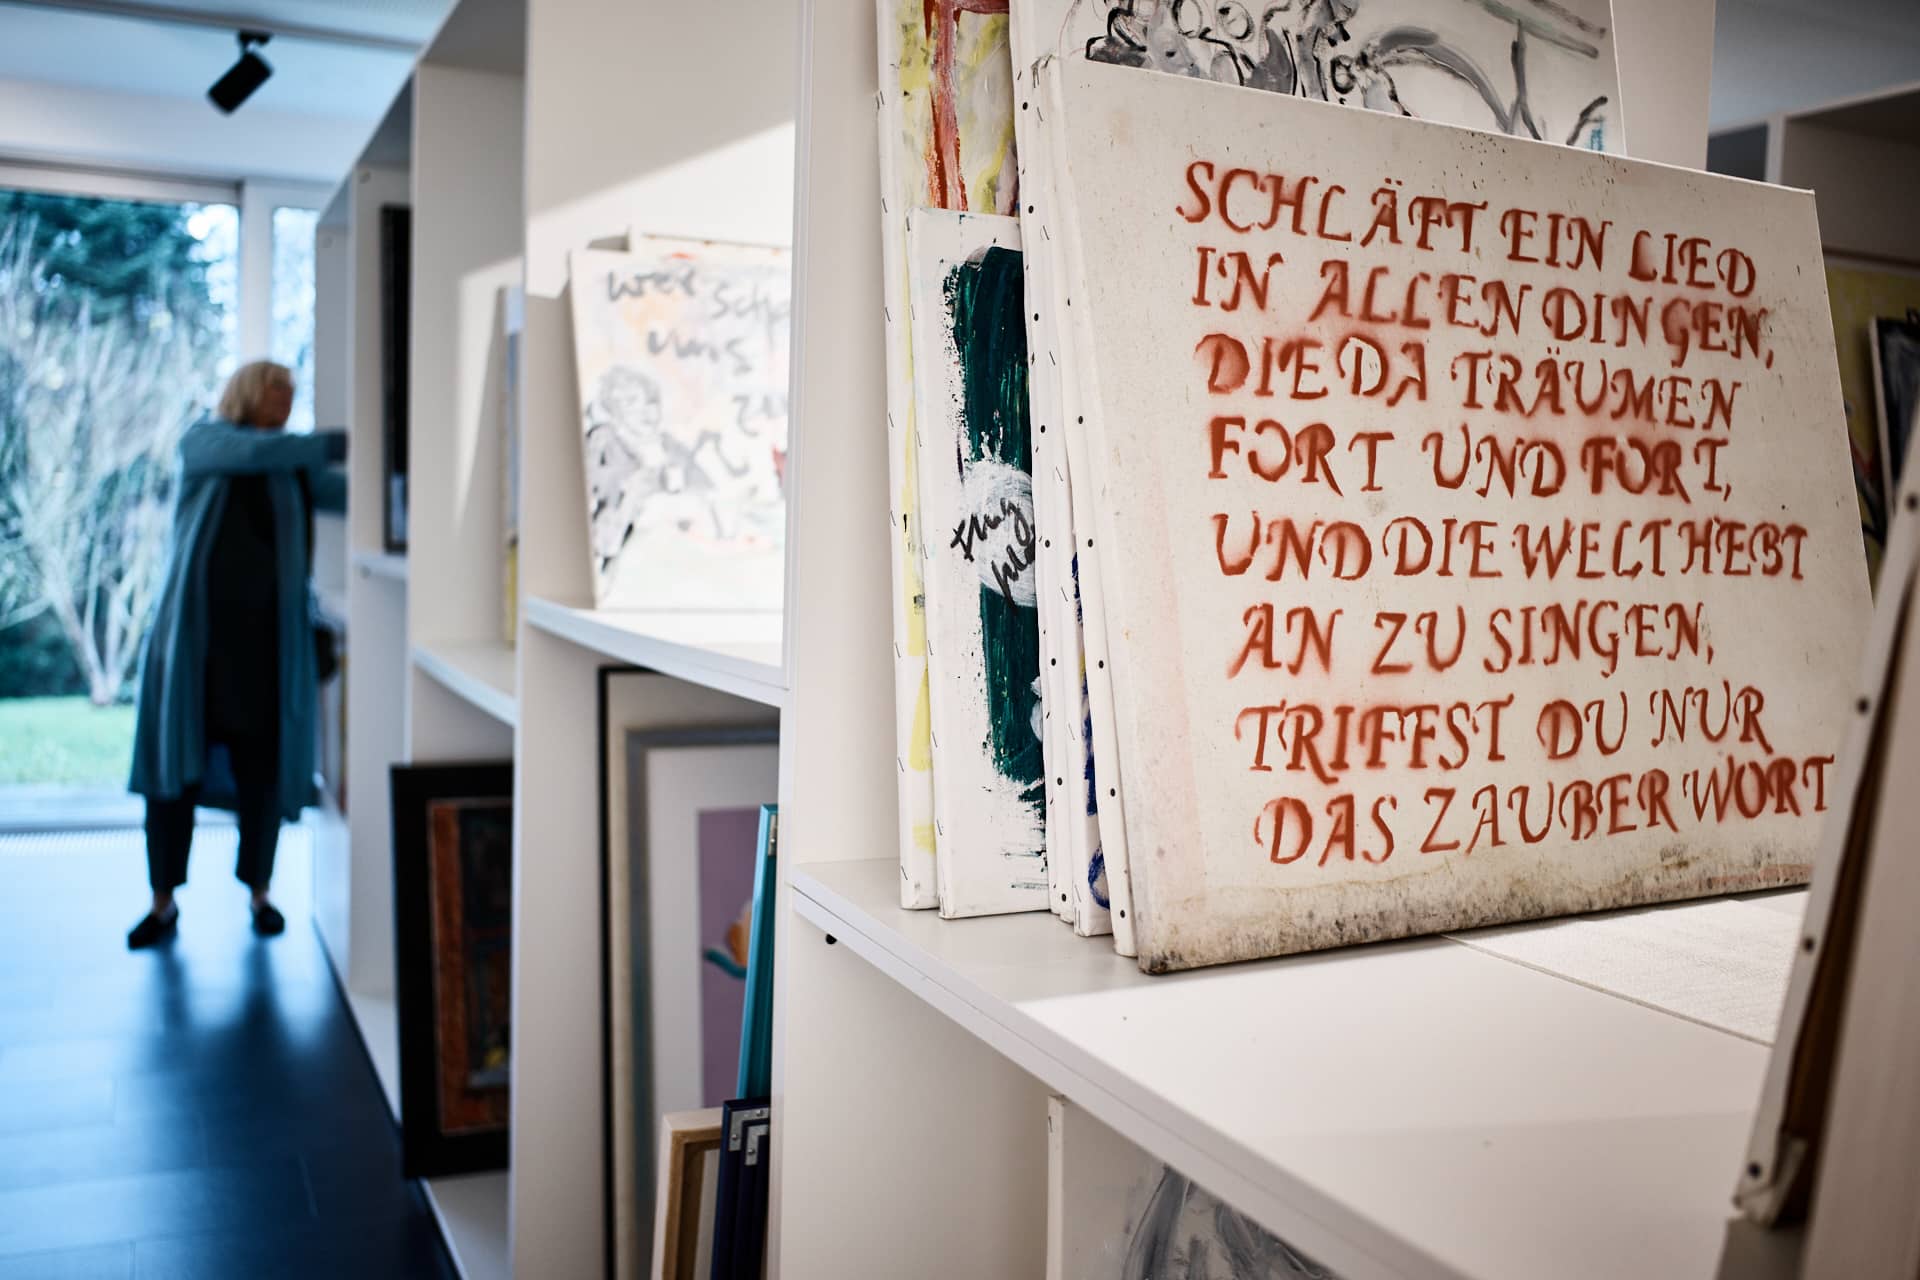 SCHLÄFT EIN LIED
IN ALLEN DINGEN,
DIE DA TRÄUMEN
FORT UND FORT,
UND DIE WELT HEBT
AN ZU SINGEN,
TRIFFST DU NUR
DAS ZAUBERWORT
wer
uns